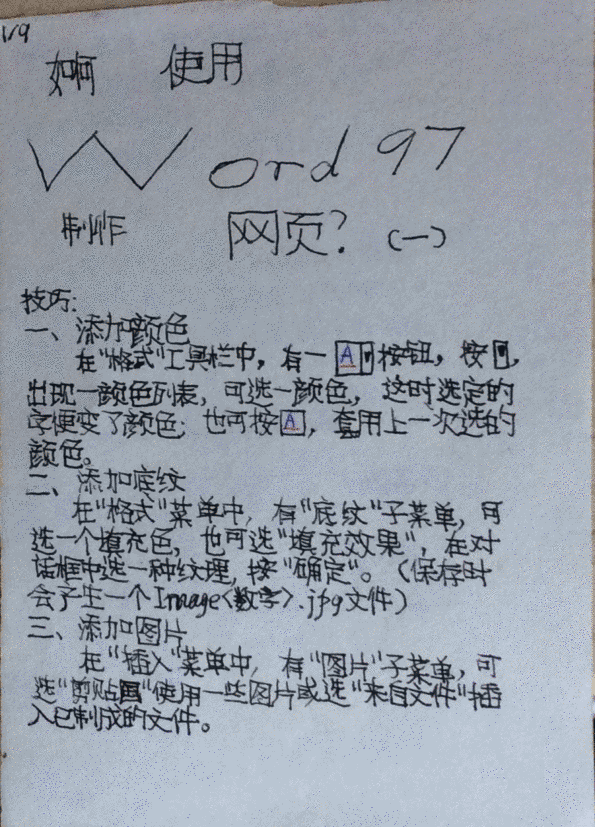 1/9
如何 使用
Word 97
制作 网页？（一）
技巧：
一、添加颜色
在“格式”工具栏中，有一A按钮，按，
出现一颜色列表，可选一颜色，这时选定的
字便变了颜色；也可按A，套用上一次选的
颜色。
二、添加底纹
在“格式”菜单中，有“底纹”子菜单，可
选一个填充色，也可选“填充效果”，在对
话框中选一种纹理，按“确定”。（保存时
会产生一个Image<数字>.jpg文件）
三、添加图片
在“插入”菜单中，有“图片”子菜单，可
选“剪贴画”使用一些图片或选“来自文件”插
入已制成的文件。